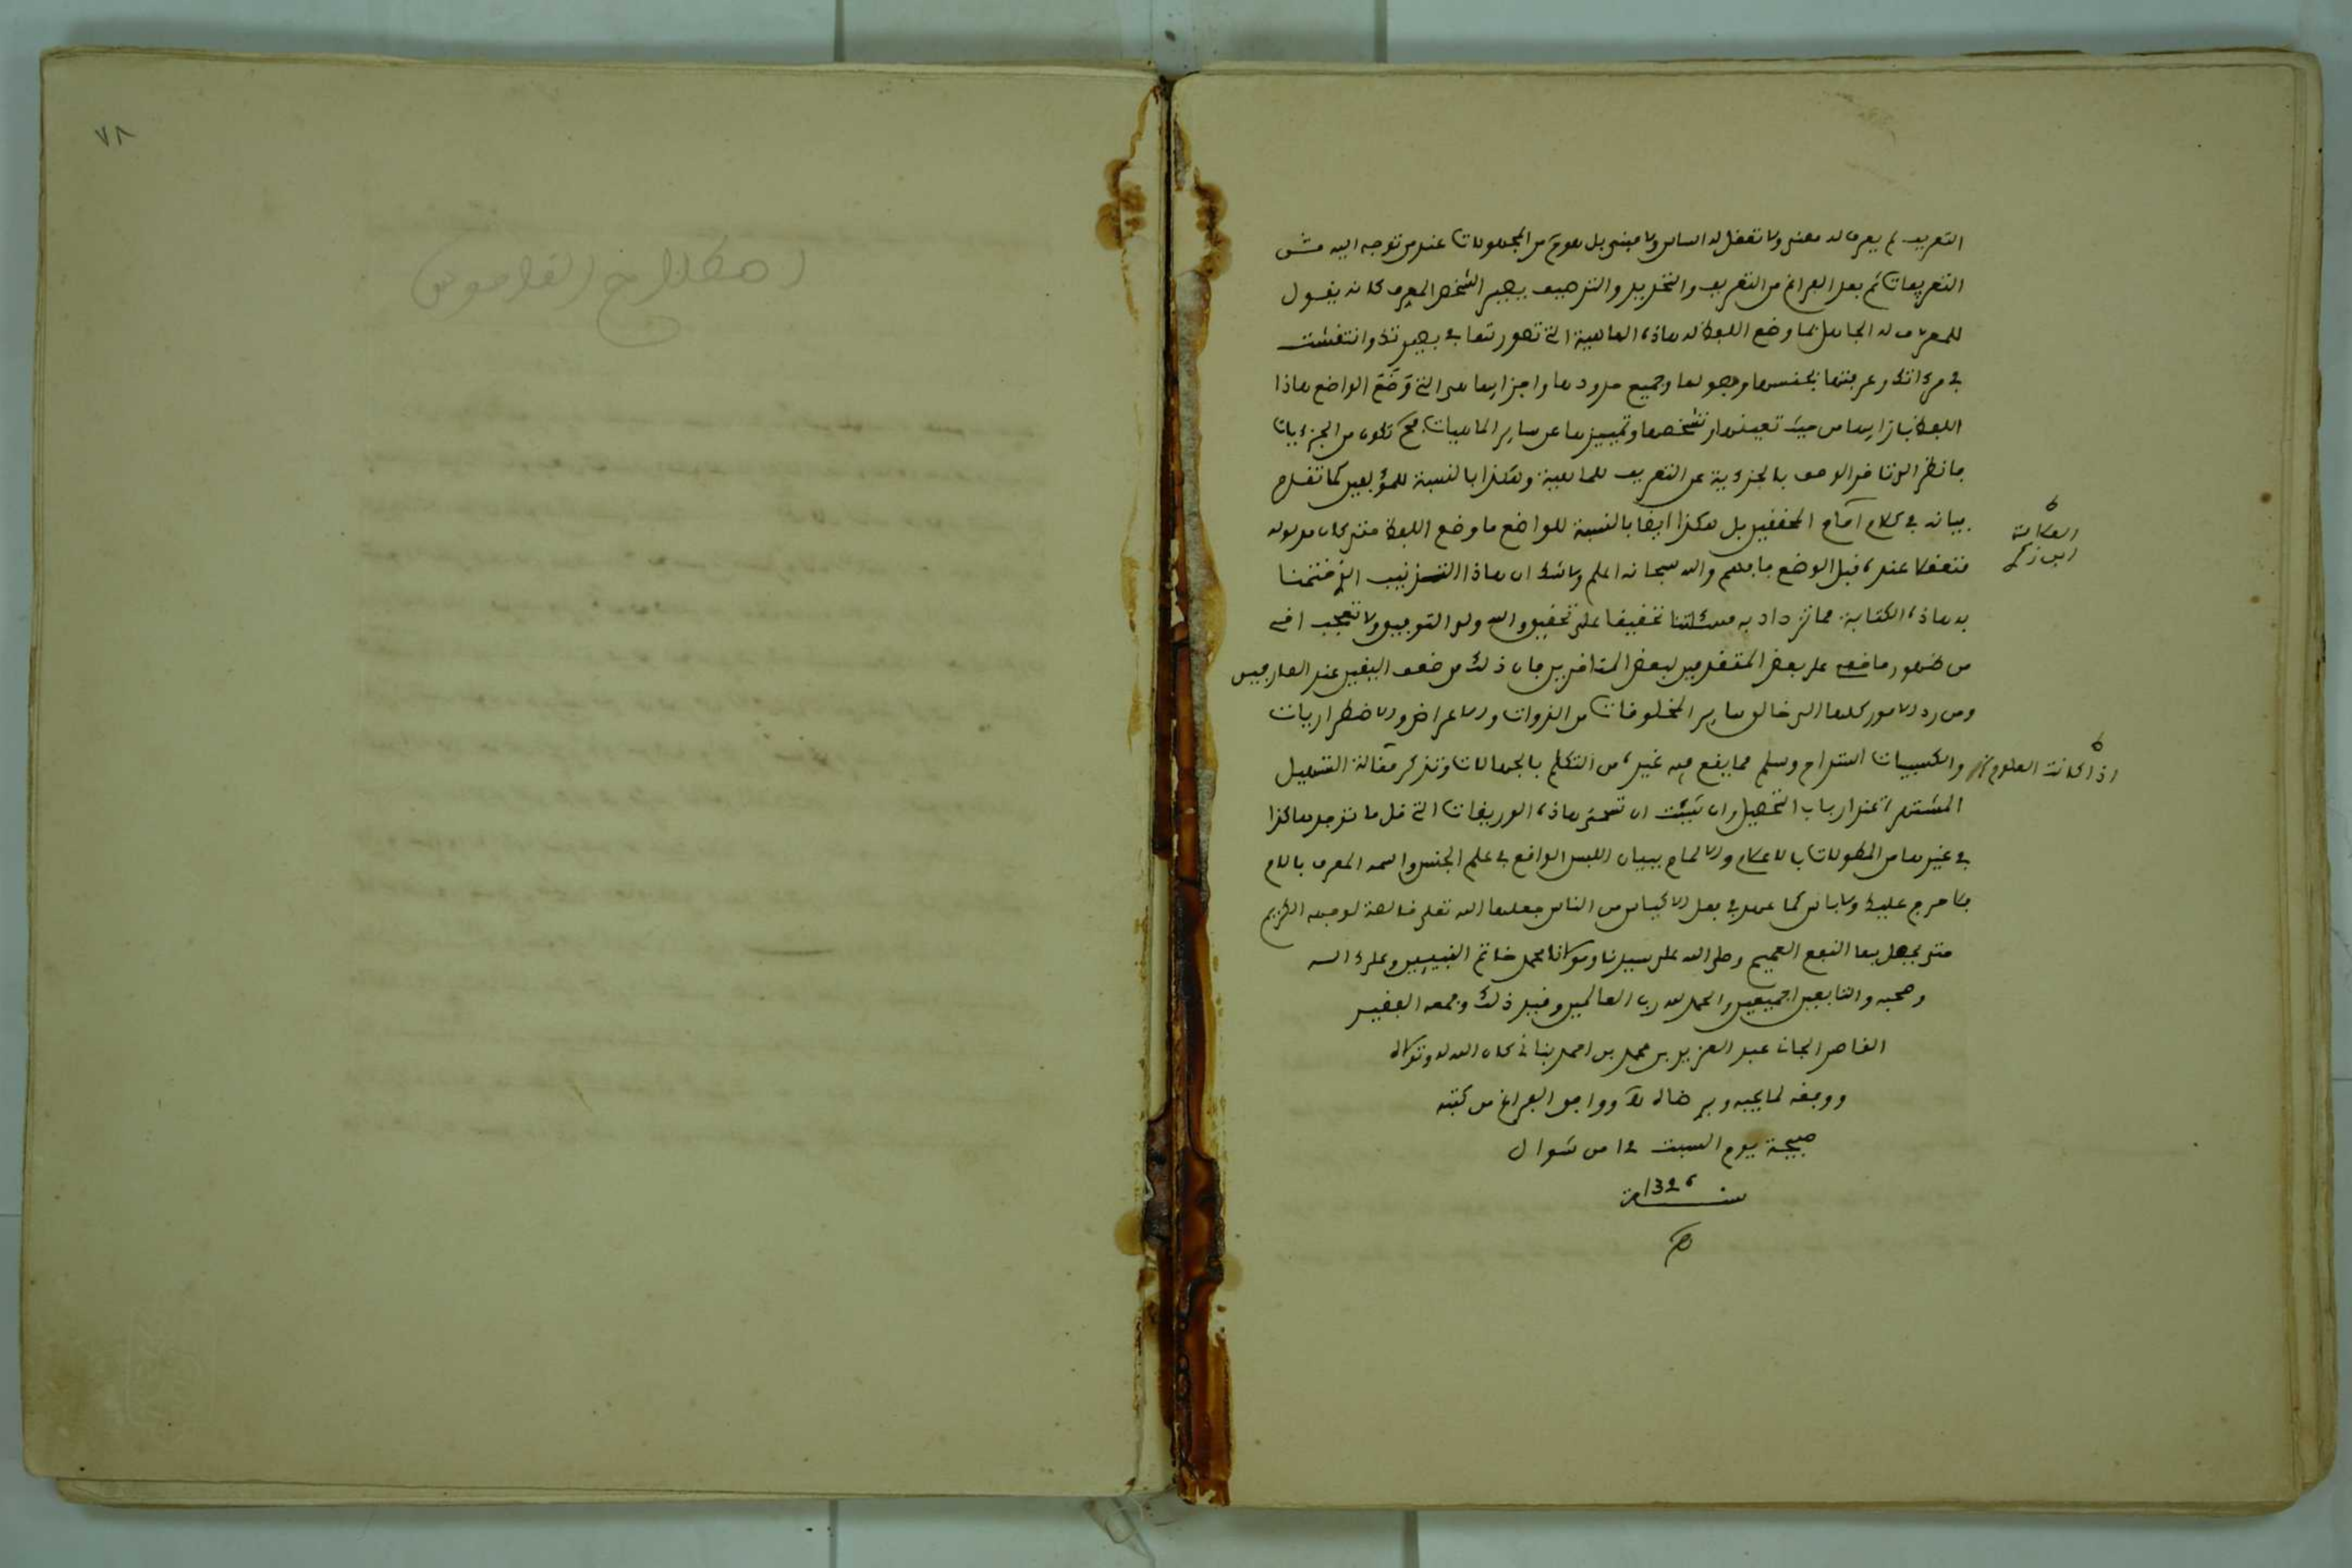 التعريف لم يعرف له معنى ولا تعقل له اساس ولا مبنى بل هو من المجهولات عند من توجه اليه
التعريفات ثم بعد الفراغ من التعريف والتحديد والترصيف يصير الشخص المعرف كانه يقول
للمعرف له الجاهل بما وضع اللفظ له هاذه الماهية التي تصورتها في بصيرتك وانتقشت
في مرءاتك وعرفتها بجنسها وفصولها وجميع حدودها واجزايها هى التي وضع الواضع هاذا
اللفظ بازايها من حيث تعينها وتشخصها وتمييزها عن ساير الماهيات فتكون من الجزءيات
فانظر الى تاخر الوصف بالجزءية عن التعريف للماهية وهكذا بالنسبة للمؤلفين كما تقدم
بيانه في كلام امام المحققين بل هكذا ايضا بالنسبة للواضع ما وضع اللفظ حتى كان مدلوله
متعقلا عنده قبل الوضع فافهم والله سبحانه اعلم ولا شك ان هاذا الترتيب الذي ختمنا
به هاذه الكتابة مما تزداد به مسئلتنا تحقيقا على تحقيق والله ولى التوفيق ولا تتعجب اخي
من ظهور ما خفي على بعض المتقدمين لبعض المتاخرين فان ذلك من ضعف اليقين عند العارفين
ومن رد الامور كلها الى خالق ساير المخلوقات من الذوات والاعراض والاضطراريات
والكسبيات استراح وسلم مما يقع فيه غيره من التكلم بالجهالات وتذكر مقالة التسهيل
العلامة ابن زكري
اذا كانت العلوم
المشتهرة عند ارباب التحصيل وان شئت ان تسمى هاذه الوريقات التي قل ما توجد هاكذا
في غيرها من المطولات بالاعلام والالمام ببيان اللبس الواقع في علم الجنس واسمه المعرف باللام
فلا حرج عليك ولا باس كما عهد في بعد الاكياس من الناس جعلها الله تعلى خالصة لوجهه الكريم
حتى يحصل بها النفع العميم وصلى الله على سيدنا ومولانا محمد خاتم النبييين وعلى ءاله
وصحبه والتابعين اجميعين والحمد لله رب العالمين وقيد ذلك وجمعه الفقير
القاصر الجان عبد العزيز بن محمد بن احمد بناني كان الله له وتولاه
ووفقه لما يحبه ويرضاه ووافق الفراغ من كتبه
صبيحة يوم السبت 12 من شوال
سنة 1326
٧٨
اصطلاح القاموس